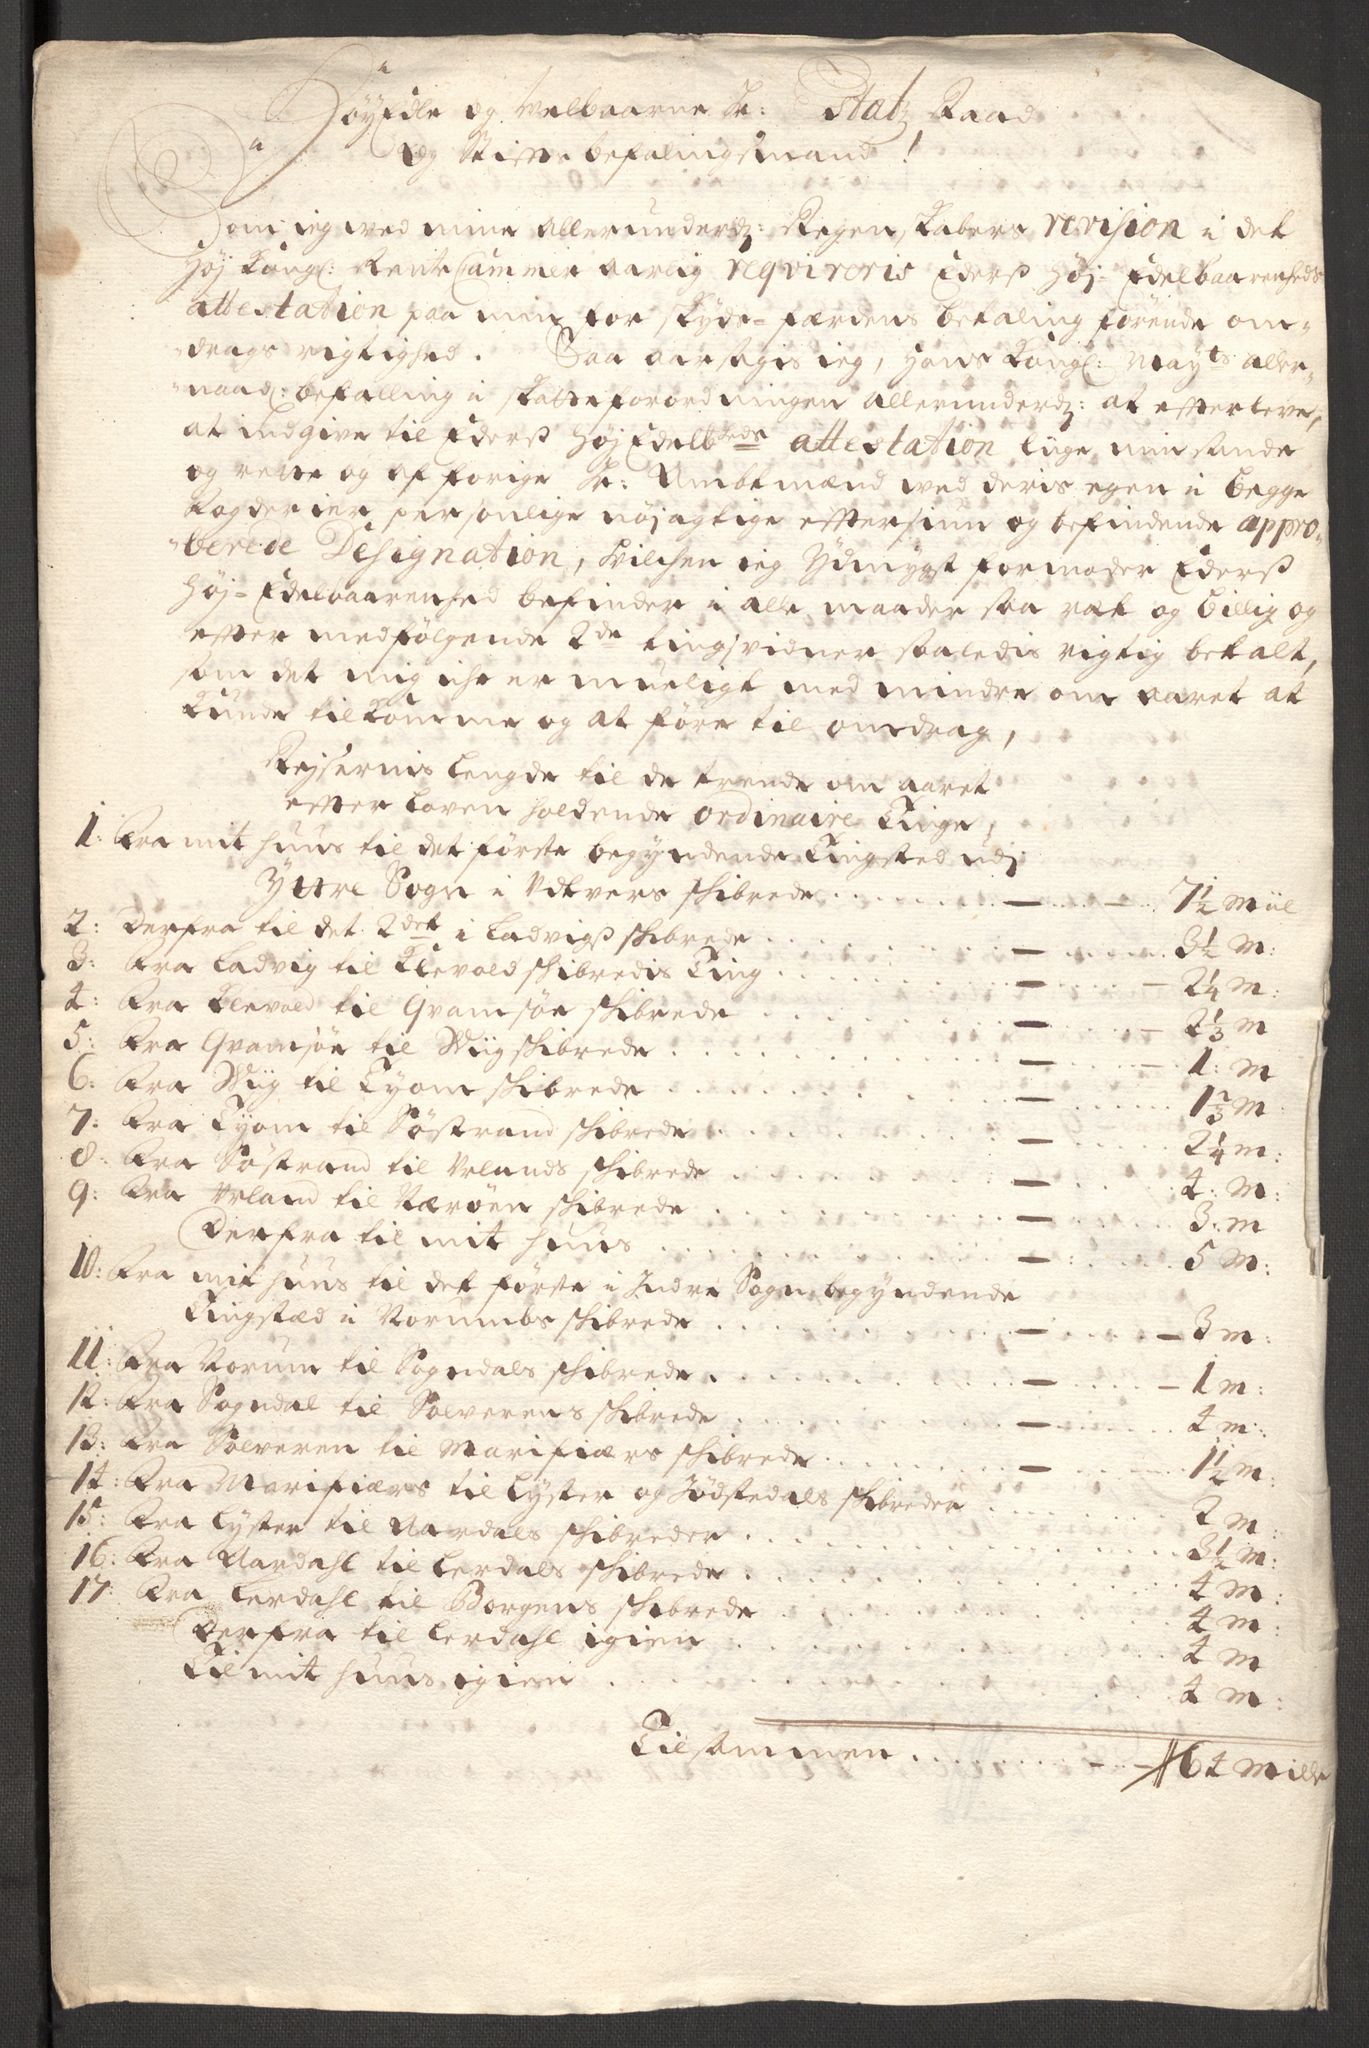 HøyEdle og Velbaarne Hr: Etatz Raad
og Stiftsbefalingsmand!
Som ieg ved mine allerunderd: Regenskabers revision i det
Høj Kongl: Rente Cammer aarlig reqvireris Ederss Høj-Edelbaarenheds
attestation paa min for skyds-færdens betaling førende om-
drags rigtighed. Saa aarsagis ieg, Hans Kongl: Mayts aller-
naad: befalling i skatteforordningen allerunderd: at efterleve,
at indgive til Ederss HøjEdelbheds attestation lige min sande
og rette og af forige Hr: Ambtmænd ved deris egen i begge
fogderier personlige nøjagtige eftersiun og befindende appro-
berede Designation, hvilchen ieg Ydmygst formoder Ederss
Høj-Edelbaarenhed befinder i alle maader saa ræt og billig og
efter medfølgende 2de tingsvidner saaledis rigtig betalt,
som det mig iche er mueligt med mindre om aaret at
kunde tilkomme og at føre til omdrag,
Rejsernis lengde til de trende om aaret
efter loven holdende ordinaire Tinge,
1: Fra mit huus til det første begyndende Tingsted udj
Yttre Sogn i Udvers schibrede . . . — . . 7½ Miil
2: Derfra til det 2det i Ladvigss schibrede . . . — . . 3½ M:
3: Fra Ladvig til Klevold schibredis Ting . . . — 2¼ M:
4: Fra Klevold til Qvamsøe schibrede . . . — 2⅓ M
5: Fra Qvamsøe til Wiig schibrede . . . — 1: M
6: Fra Wiig til Tyom schibrede . . . — 1⅔ M
7: Fra Tyom til Søstrand schibrede . . . — 2¼ M:
8: Fra Søstrand til Urlands schibrede . . . — 4: M:
9: Fra Urland til Nærøen schibrede . . . — 3: M
Derfra til mit huus . . . — 5 M:
10: Fra mit huus til det første i Indre Sogn begyndende
Tingstæd i Norumbs schibrede . . . — 3 M:
11: Fra Norum til Sogndals schibrede . . . — 1 M:
12: Fra Sogndal til Solverens schibrede . . . — 4 M:
13: Fra Solveren til Marifiærs schibrede . . . — 1½ M:
14: Fra Marifiærs til Lyster og Jødstedals schibreder . . . 2 M:
15: Fra Lyster til Aardals schibreder . . . 3½ M:
16: Fra Aardahl til Lerdals schibrede . . . 4 M:
17: Fra Lerdahl til Borgens schibrede . . . 4 M:
Derfra til Lerdahl igien . . . 4 M
Til mit huus igien . . . 4 M:
Tilsammen . . . — 64 Mille